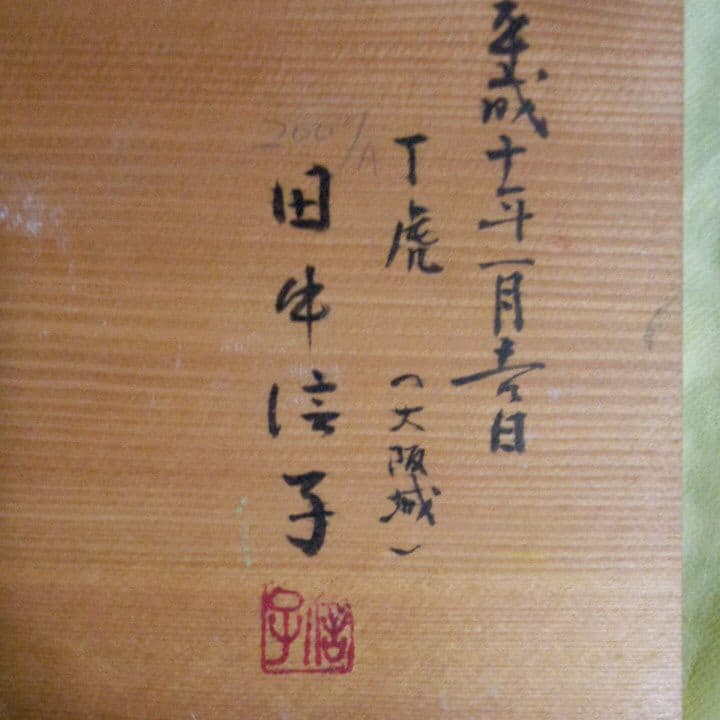 平成十年一月吉日
丁虎
(大阪城)
田中信子
信子